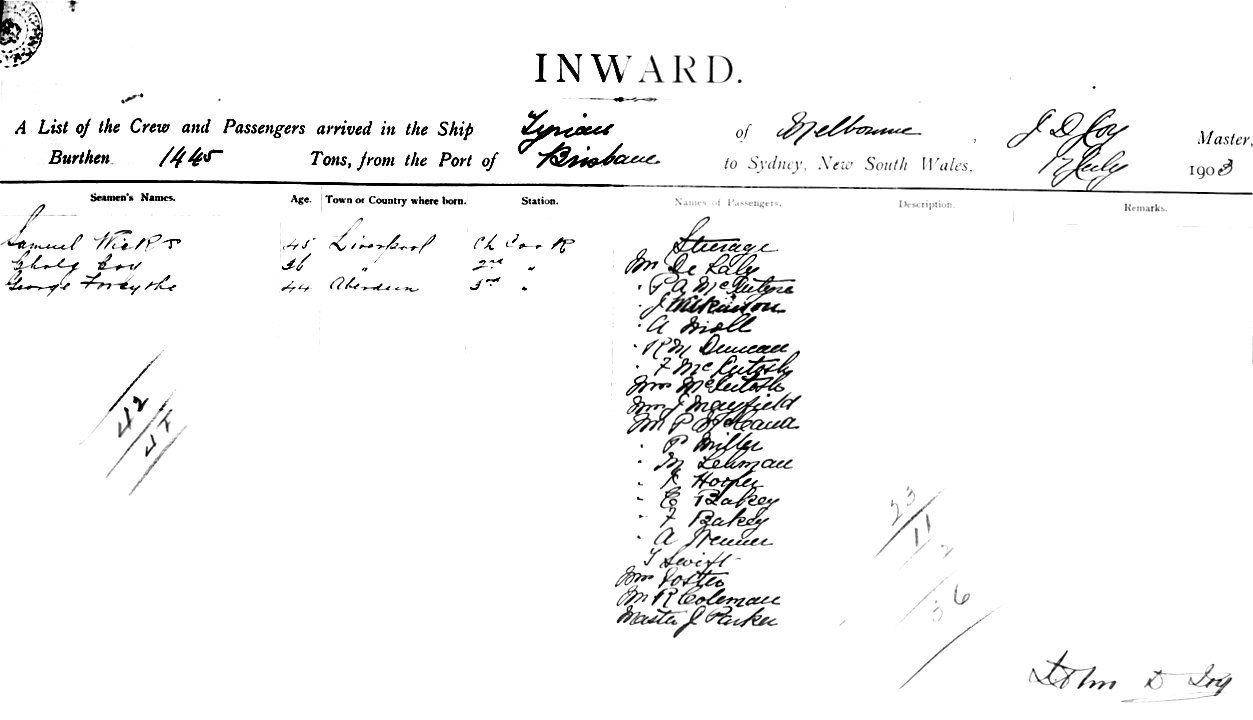 INWARD.
A List of the Crew and Passengers arrived in the Ship Tyrian of Melbourne, J D Joy Master,
Burthen 1445 Tons, from the Port of Brisbane to Sydney, New South Wales, 17 July 1903
Seamen's Names. Age. Town or Country where born. Station. Names of Passengers. Description. Remarks.
Steerage
Samuel Wicks 45 Liverpool Ch Cook
36 " 2nd "
George Forsythe 44 Aberdeen 3rd "
Mr De Laly
" P A McIntyre
" J Wilkinson
" A Moll
" R M Duncan
" F McIntosh
Mrs McIntosh
Mrs J Mayfield
Mr P
" P Miller
" M Lehman
" F Hooper
" C Bakey
" F Bakey
" A
T Swift
Mrs Foster
Mr R Coleman
Master J Parker
42
23
11
2
36
John D Joy